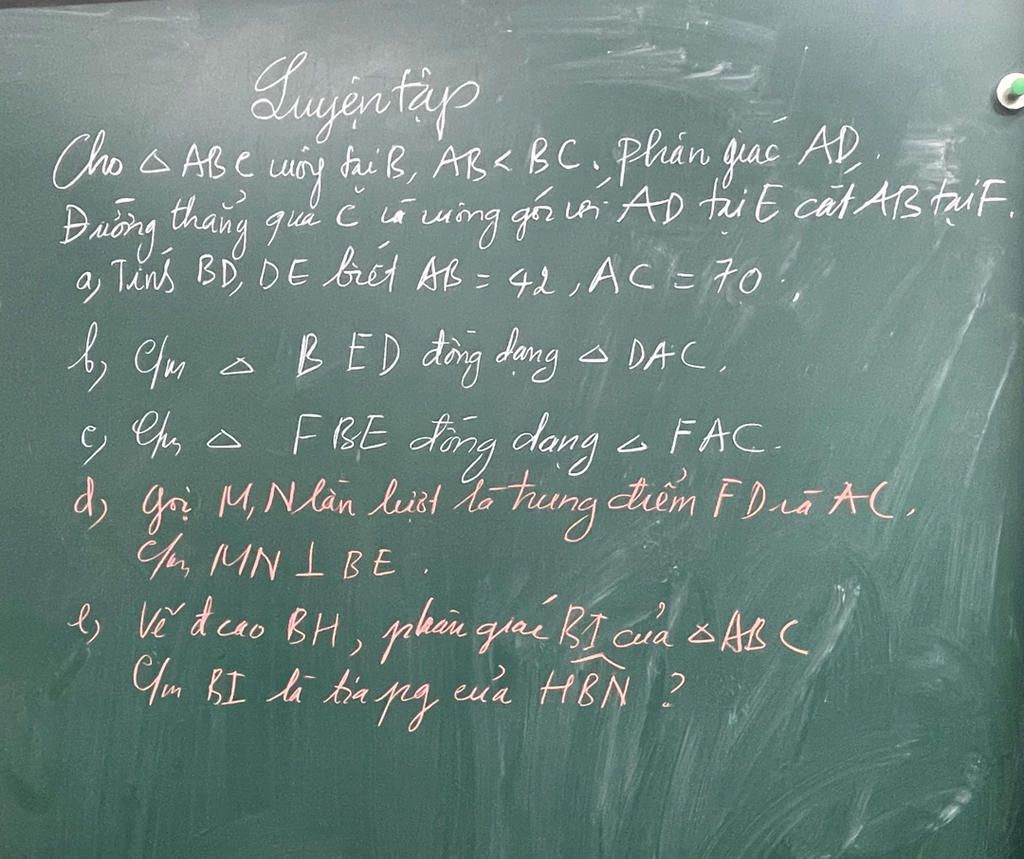 Luyện tập
Cho △ ABC vuông tại B, AB < BC. Phân giác AD.
Đường thẳng qua C và vuông góc với AD tại E cắt AB tại F.
a, Tính BD, DE biết AB = 42, AC = 70.
b, C/m △ BED đồng dạng △ DAC.
c, C/m △ FBE đồng dạng △ FAC.
d, Gọi M, N lần lượt là trung điểm FD và AC.
C/m MN ⊥ BE.
e, Vẽ đcao BH, phân giác BI của △ ABC
C/m BI là tia pg của HBN ?